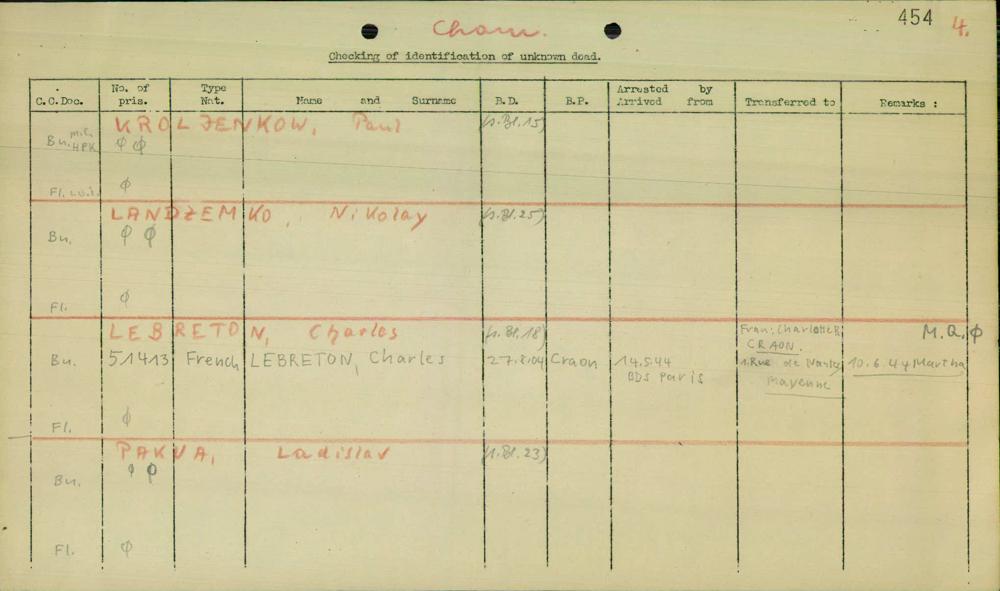 454 4.
Cham.
Checking of identification of unknown dead.
C.C.Doc. No. of pris. Type Nat. Name and Surname B.D. B.P. Arrested by Arrived from Transferred to Remarks :
KROLZENKOW, Paul (s.Bl.15)
Bu. HPK φ φ
Fl. φ
LANDZEMKO, Nikolay (s.Bl.25)
Bu. φ φ
Fl. φ
LEBRETON, Charles (s.Bl.18) Frau: Charlotte R. M.Q. φ
CRAON.
Bu. 51413 French LEBRETON, Charles 27.8.04 Craon 14.5.44 1.Rue de 10.6.44 Martha
BDS Paris Mayenne
Fl. φ
PAKVA, Ladislav (s.Bl.23)
Bu. φ φ
Fl. φ